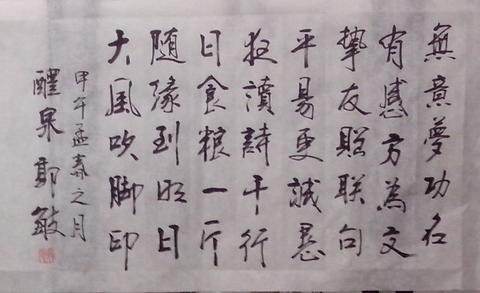 無意夢功名
有感方為文
摯友贈联句
平易更誠恳
夜讀詩千行
日食粮一斤
随缘到明日
大風吹脚印
甲午孟春之月
醴泉郭敏